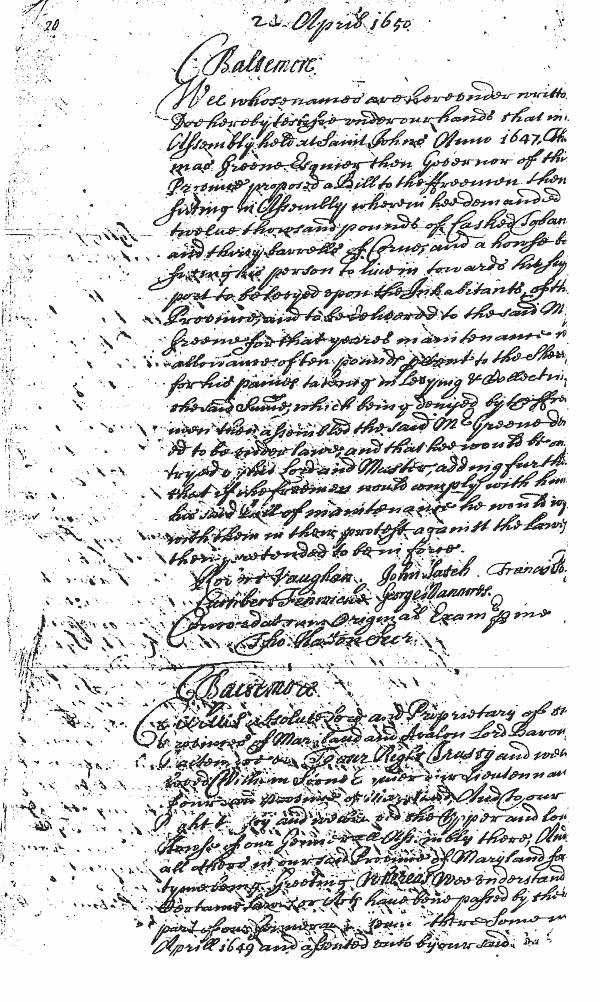 20
2d April 1650
C Baltemore
Wee whose names are hereunder writte
Doe hereby testifie under our hands that in
Assembly held at Saint Johns Anno 1647, Th
mas Greene Esquier then Governor of thi
Province proposed a Bill to the ffreemen then
sitting in Assembly wherein hee demanded
twelve thowsand pounds of Casked Tobac
and thirty barrells of Corne, and a house be
fitting his person to live in towards his sup
port to be levyed upon the Inhabitants of th
Province, and to be delivered to the said Mr
Greene for that yeares maintenance
allowance of ten pounds p Cent to the Sher
for his paines takeing in Levying & Collectin
the said Sume, which being denyed by the ffre
men then assembled the said Mr Greene de
ed to be under lawe, and that hee would be
tryed his Lord and Master, adding furth
that if the freemen would comply with him
his said Bill of maintenance he would
with them in their protest against the laws
then pretended to be in force.
Vaughan. John Hatch Francis
Cuthbert Fenwicke George Manners.
Concordat cum Originali Exam p me
Tho. Hatton Secr
C Baltemore
Cecilius Absolute Lord and Proprietary of
Provinces of Maryland and Avalon Lord Baron
To our Right Trusty and wel
William Stone under our Lieutenna
of our said Province of Maryland, And to our
and the Upper and lo
house of our Generall Assembly there, An
all others in our said Province of Maryland for
tyme being Greeting Whereas Wee understand
Certaine Lawes or Acts have bene passed by the
part of our Generall there Some
Aprill 1649 and assented unto by our said